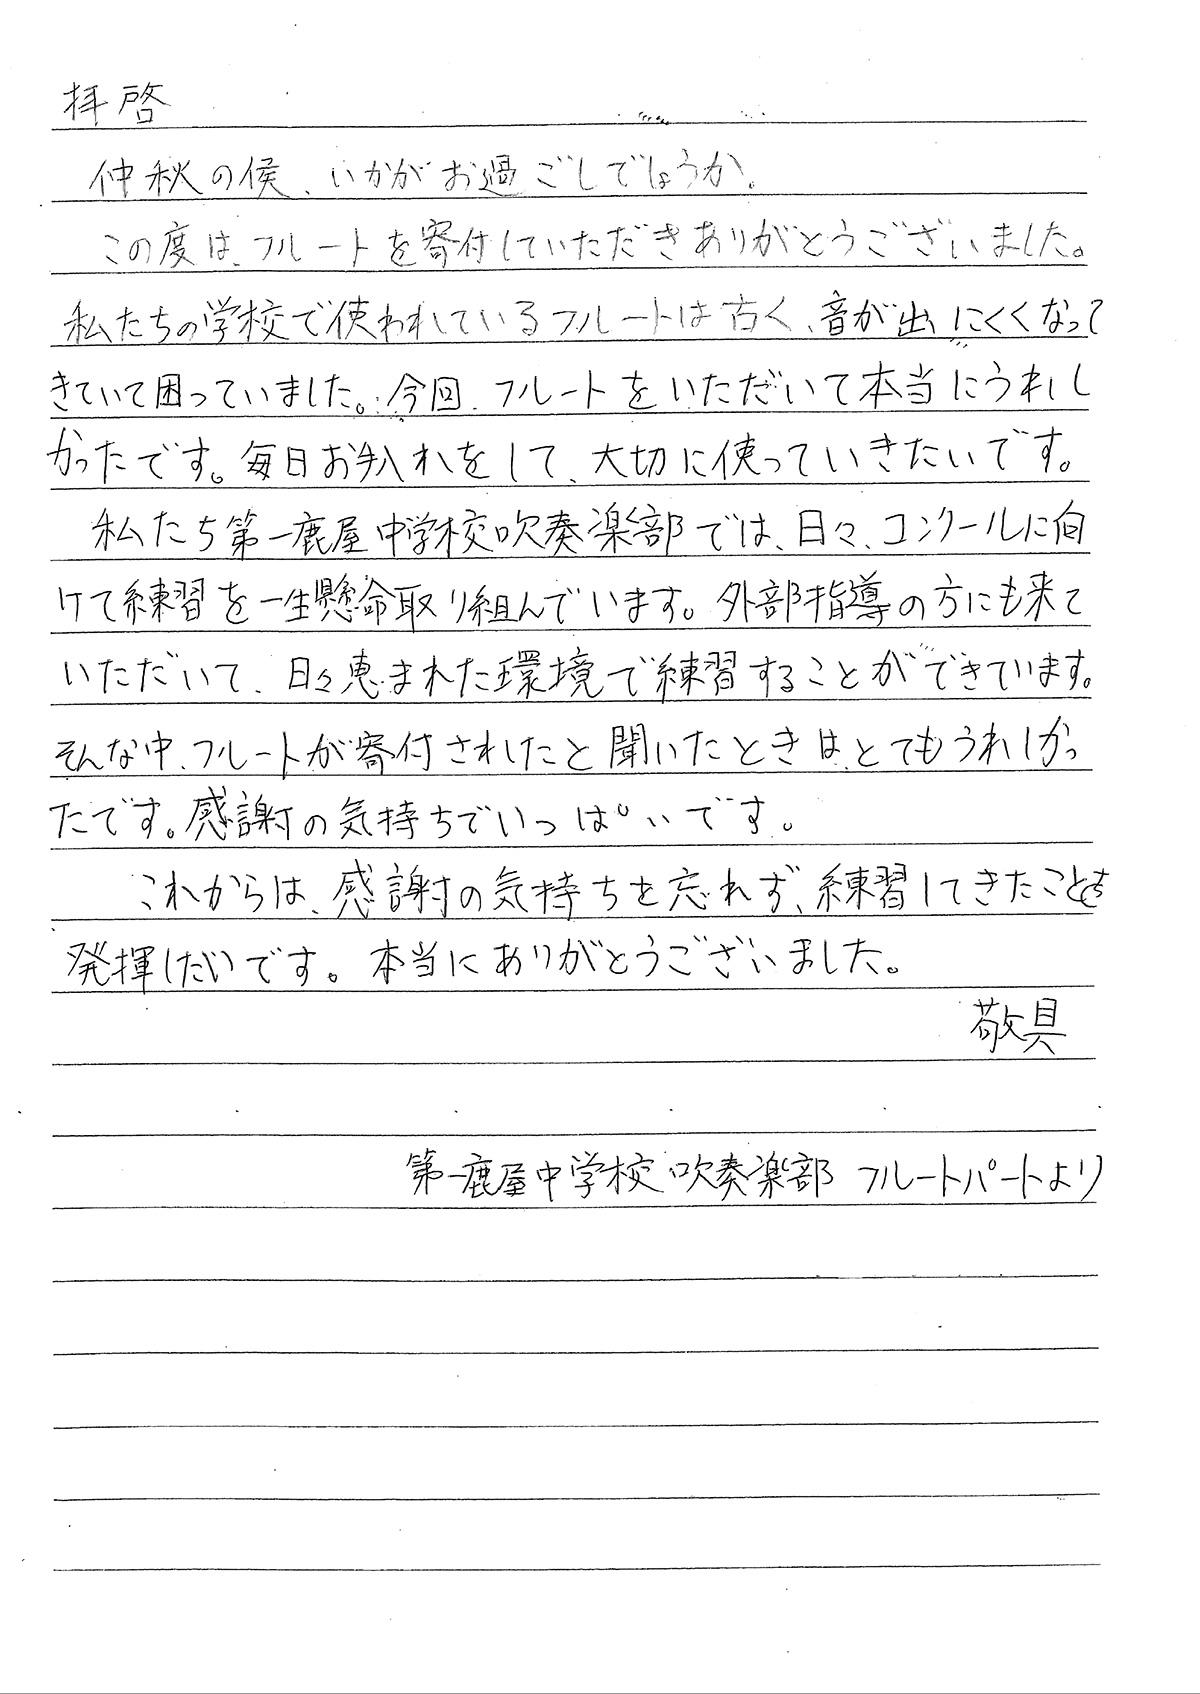 拝啓
仲秋の候、いかがお過ごしでしょうか。
この度は、フルートを寄付していただきありがとうございました。
私たちの学校で使われているフルートは古く、音が出にくくなって
きていて困っていました。今回、フルートをいただいて本当にうれし
かったです。毎日お手入れをして、大切に使っていきたいです。
私たち第一鹿屋中学校吹奏楽部では、日々、コンクールに向
けて練習を一生懸命取り組んでいます。外部指導の方にも来て
いただいて、日々恵まれた環境で練習することができています。
そんな中、フルートが寄付されたと聞いたときは、とてもうれしかっ
たです。感謝の気持ちでいっぱいです。
これからは、感謝の気持ちを忘れず、練習してきたことを
発揮したいです。本当にありがとうございました。
敬具
第一鹿屋中学校 吹奏楽部 フルートパートより